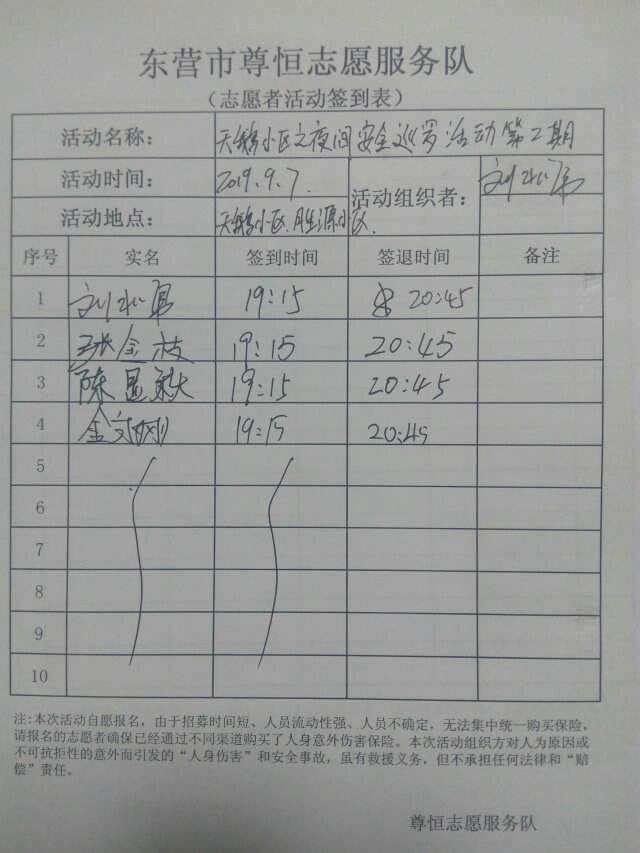 东营市尊恒志愿服务队
（志愿者活动签到表）
活动名称： 天鹅小区之夜间安全巡罗活动第2期
活动时间： 2019.9.7. 活动组织者： 刘
活动地点： 天鹅小区.胜源小区.
序号 实名 签到时间 签退时间 备注
1 刘 19:15 20:45
2 张金枝 19:15 20:45
3 陈显 19:15 20:45
4 金文刚 19:15 20:45
5
6
7
8
9
10
注：本次活动自愿报名，由于招募时间短、人员流动性强、人员不确定，无法集中统一购买保险，
请报名的志愿者确保已经通过不同渠道购买了人身意外伤害保险。本次活动组织方对人为原因或
不可抗拒性的意外而引发的“人身伤害”和安全事故，虽有救援义务，但不承担任何法律和“赔
偿”责任。
尊恒志愿服务队